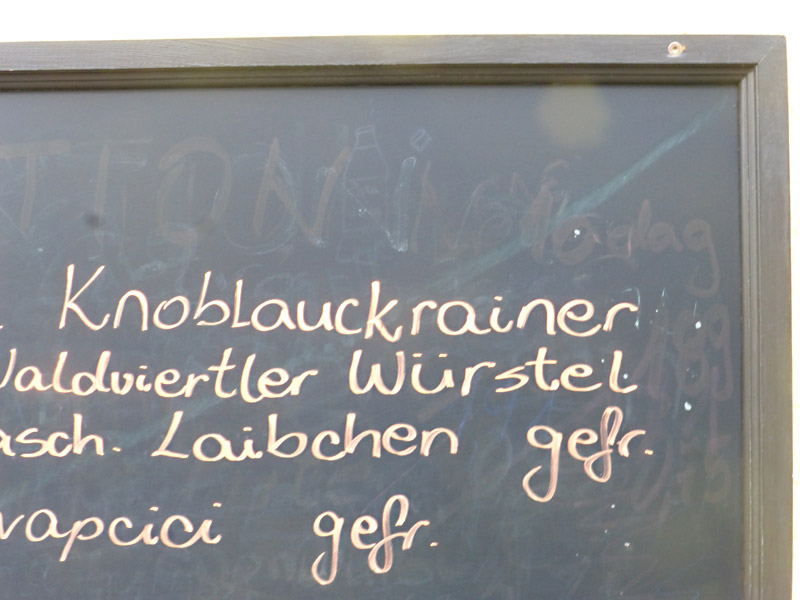 Knoblauckrainer
Waldviertler Würstel
asch. Laibchen gefr.
vapcici gefr.